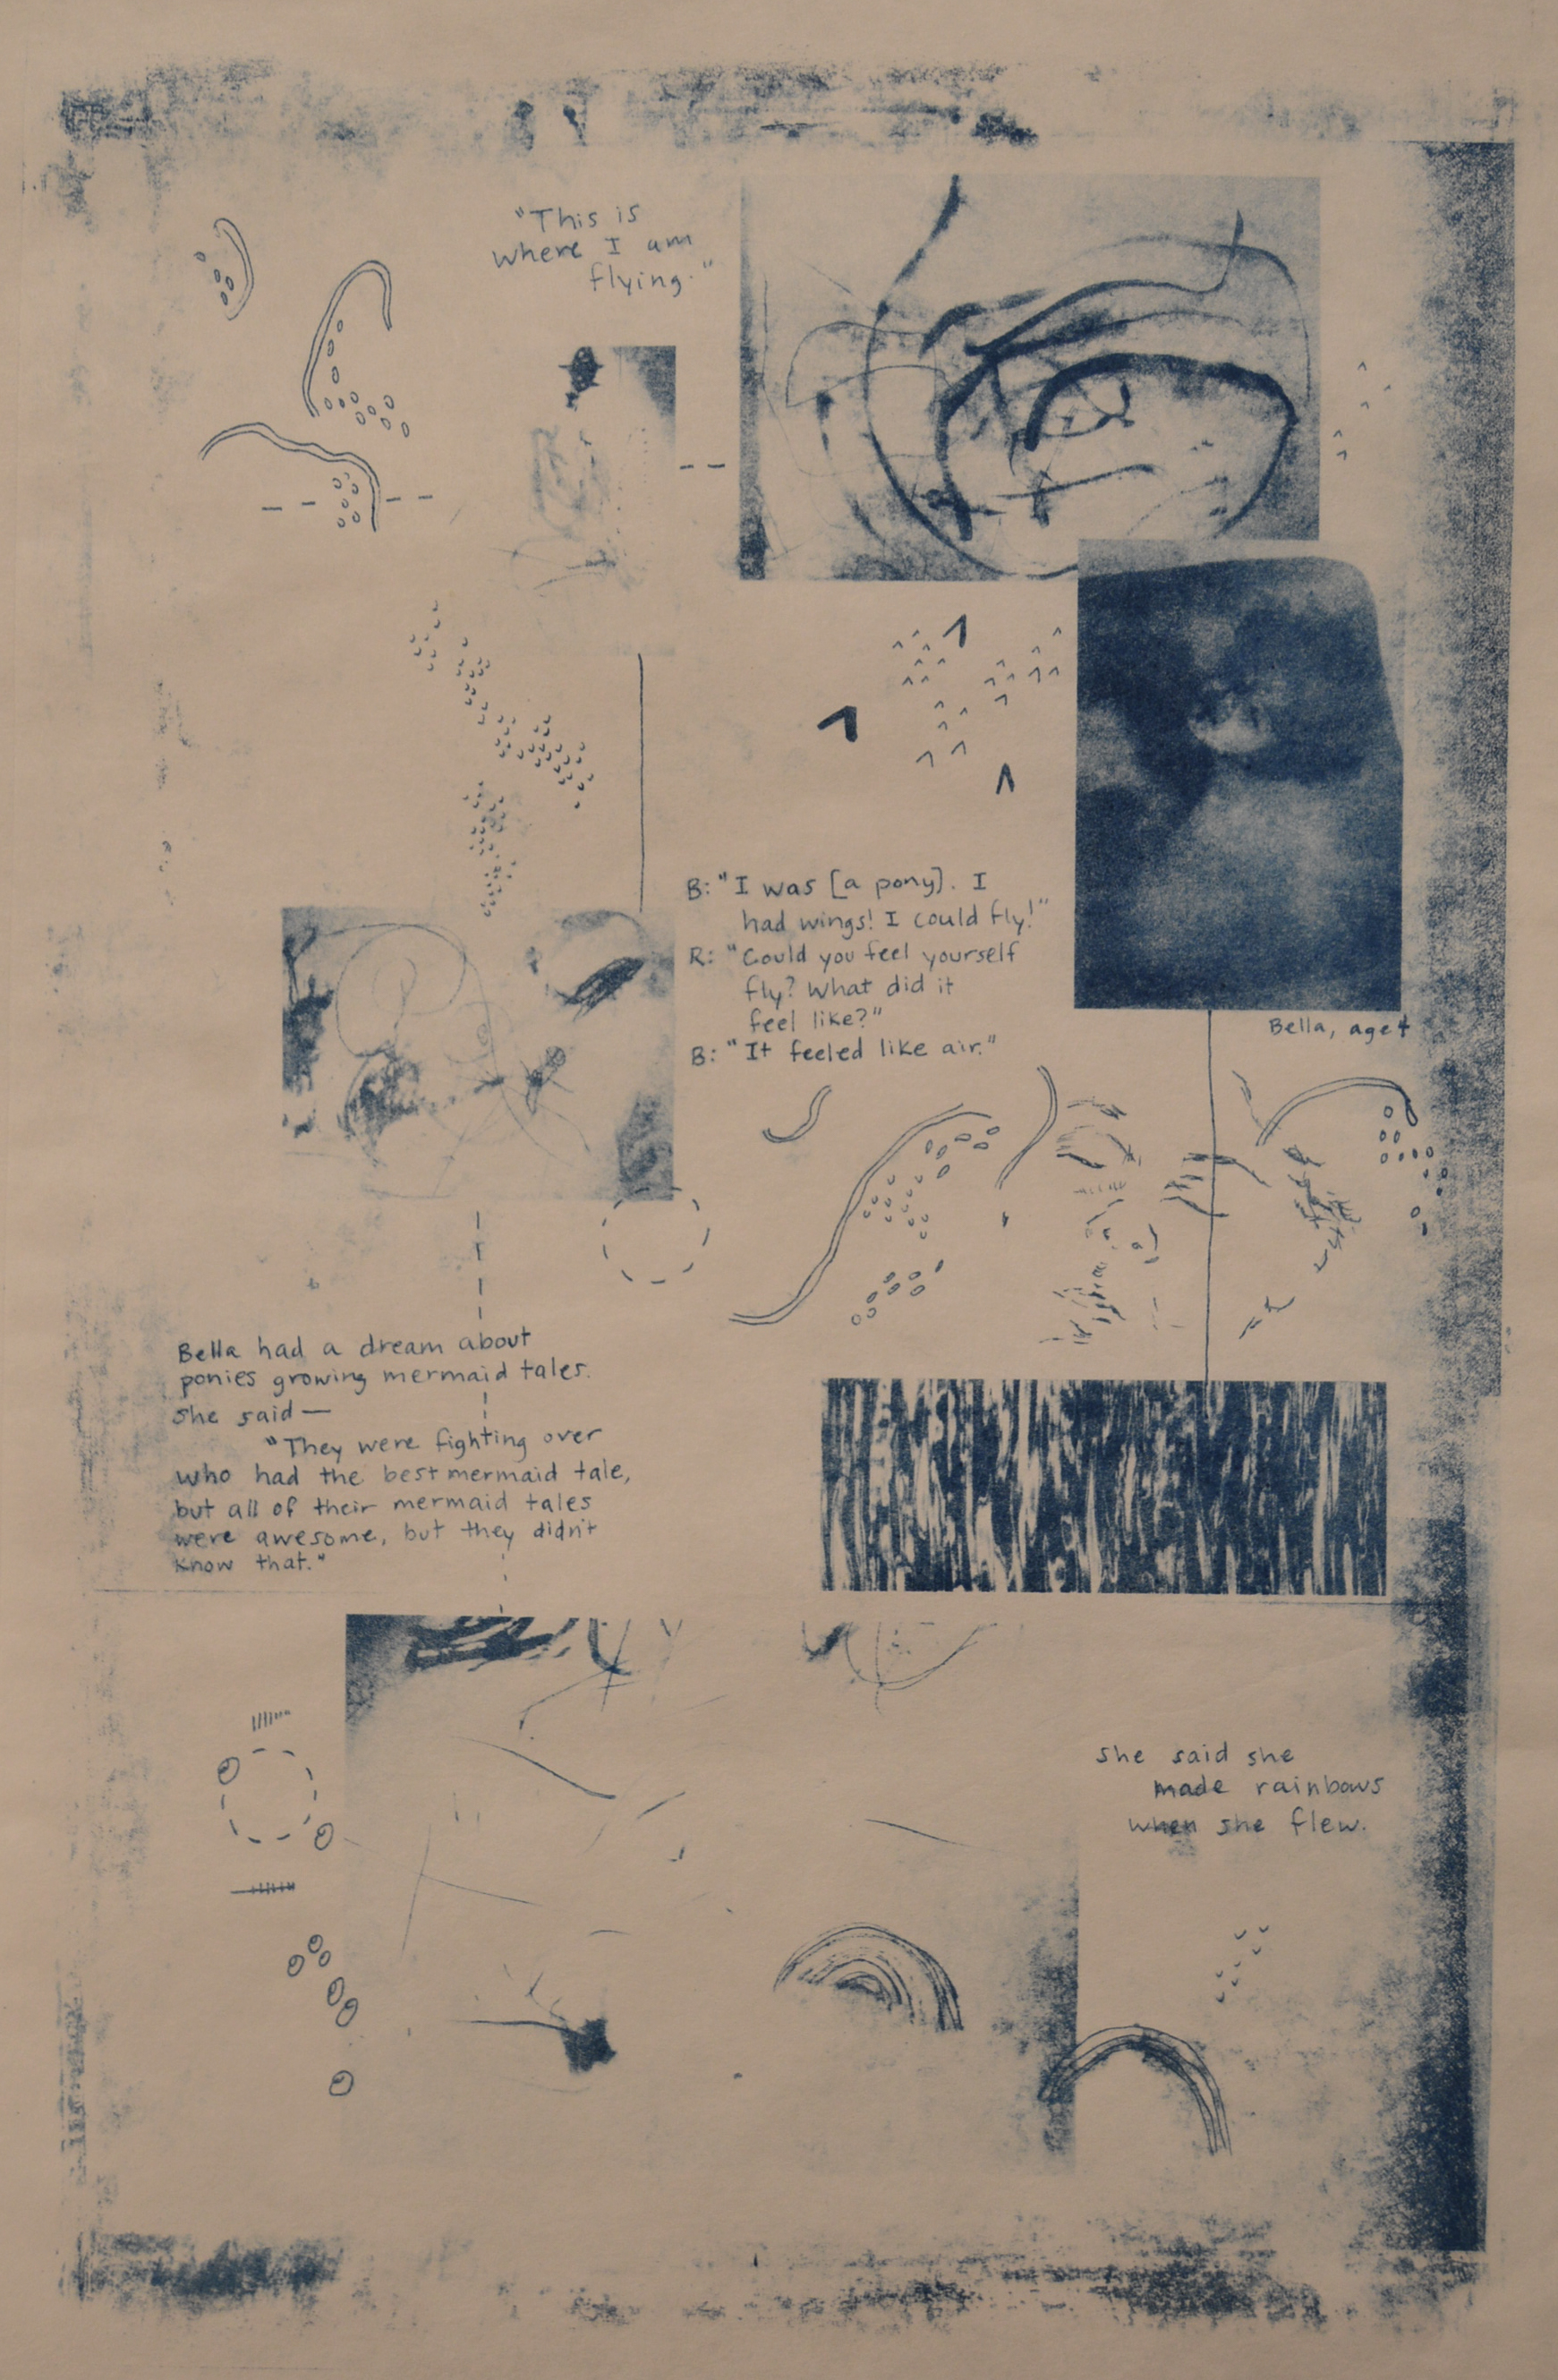 "This is
where I am
flying."
B: "I was [a pony]. I
had wings! I could fly!"
R: "Could you feel yourself
fly? What did it
feel like?"
B: "It feeled like air."
Bella, age 4
Bella had a dream about
ponies growing mermaid tales.
She said —
"They were fighting over
who had the best mermaid tale,
but all of their mermaid tales
were awesome, but they didn't
know that."
she said she
made rainbows
when she flew.